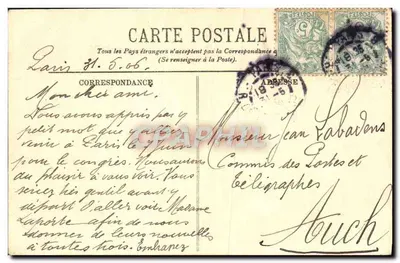 CARTE POSTALE
Tous les Pays étrangers n'acceptent pas la Correspondance
(Se renseigner à la Poste).
Paris 31.5.06
CORRESPONDANCE
ADRESSE
Mon cher ami.
Nous avons appris par
petit mot que
venir à Paris
pour le congrès. Nous aurons
du plaisir à vous voir. Vous
seriez très gentil avant
départ d'aller voir Madame
Laporte afin de nous
donner de leurs nouvelles
à toutes trois.
Monsieur Jean Labadens
Commis des Postes et
Télégraphes
Auch